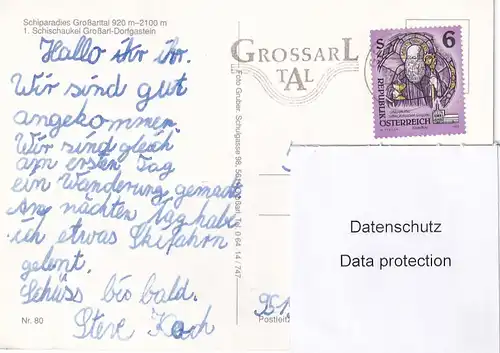 Schiparadies Großarltal 920 m–2100 m
1. Schischaukel Großarl-Dorfgastein
Hallo ihr ihr.
Wir sind gut
angekommen.
Wir sind gleich
am ersten Tag
ein Wanderung gemacht
Am nächten Tag habe
ich etwas Skifahrn
gelernt.
Schüss bis bald.
Steve Koch
Nr. 80
Foto Gruber, Schulgasse 98,
Tel. 0 64 14 / 747
GROSSARL
TAL
S 6
REPUBLIK
ÖSTERREICH
Postleitz
Datenschutz
Data protection